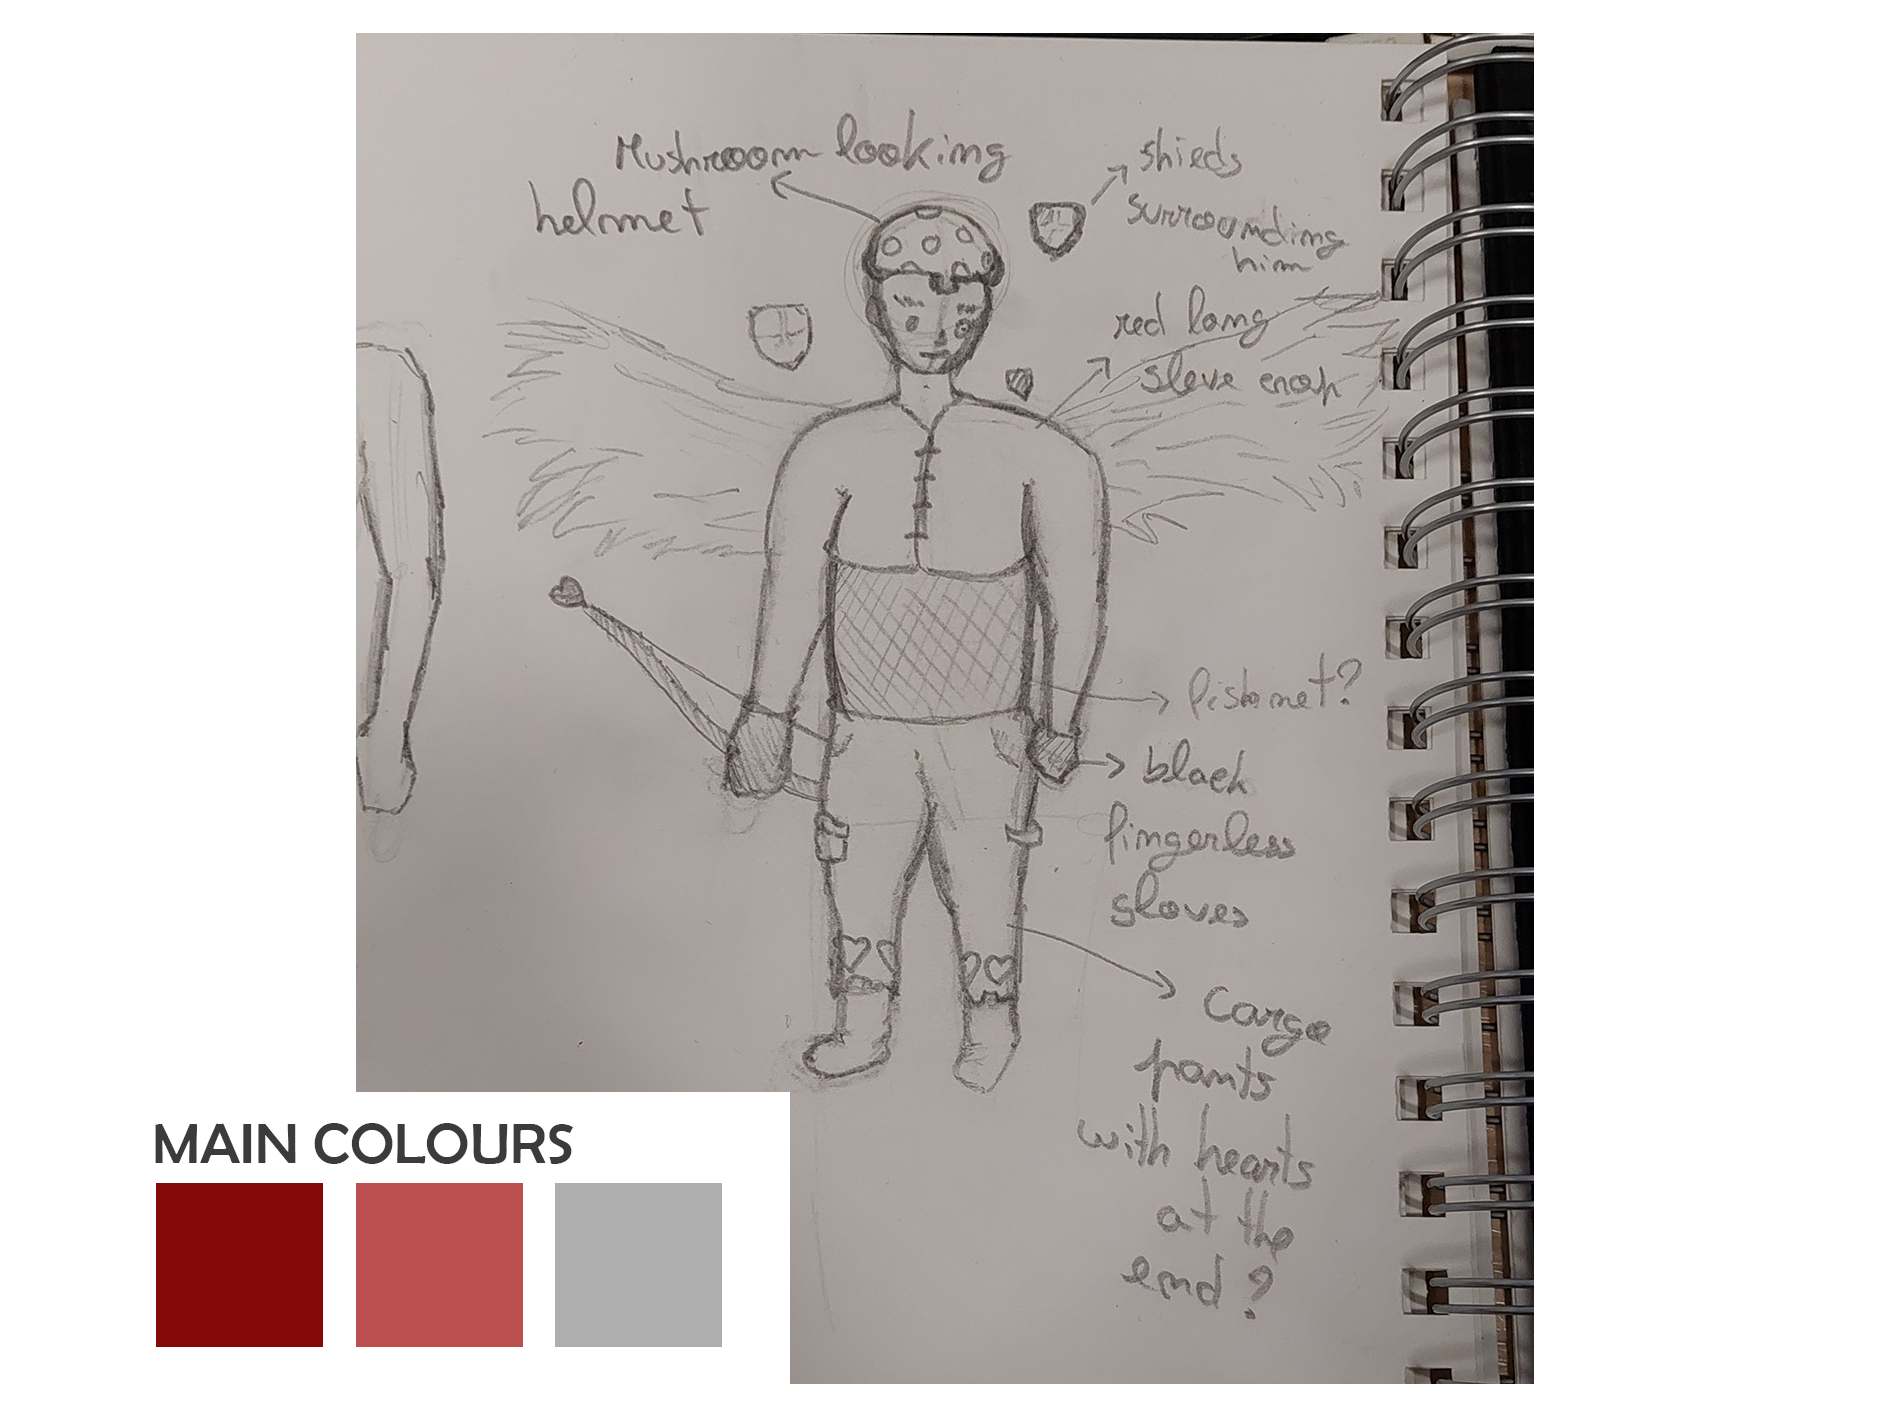 Mushroom looking
helmet
shieds
surrounding
him
red long
sleve crop
fishnet?
black
fingerless
gloves
Cargo
pants
with hearts
at the
end?
MAIN COLOURS